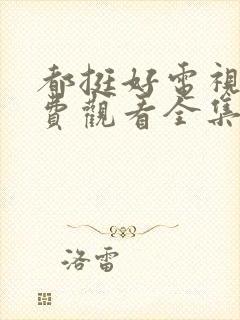 都挺好電視
費觀看全集
洛雷